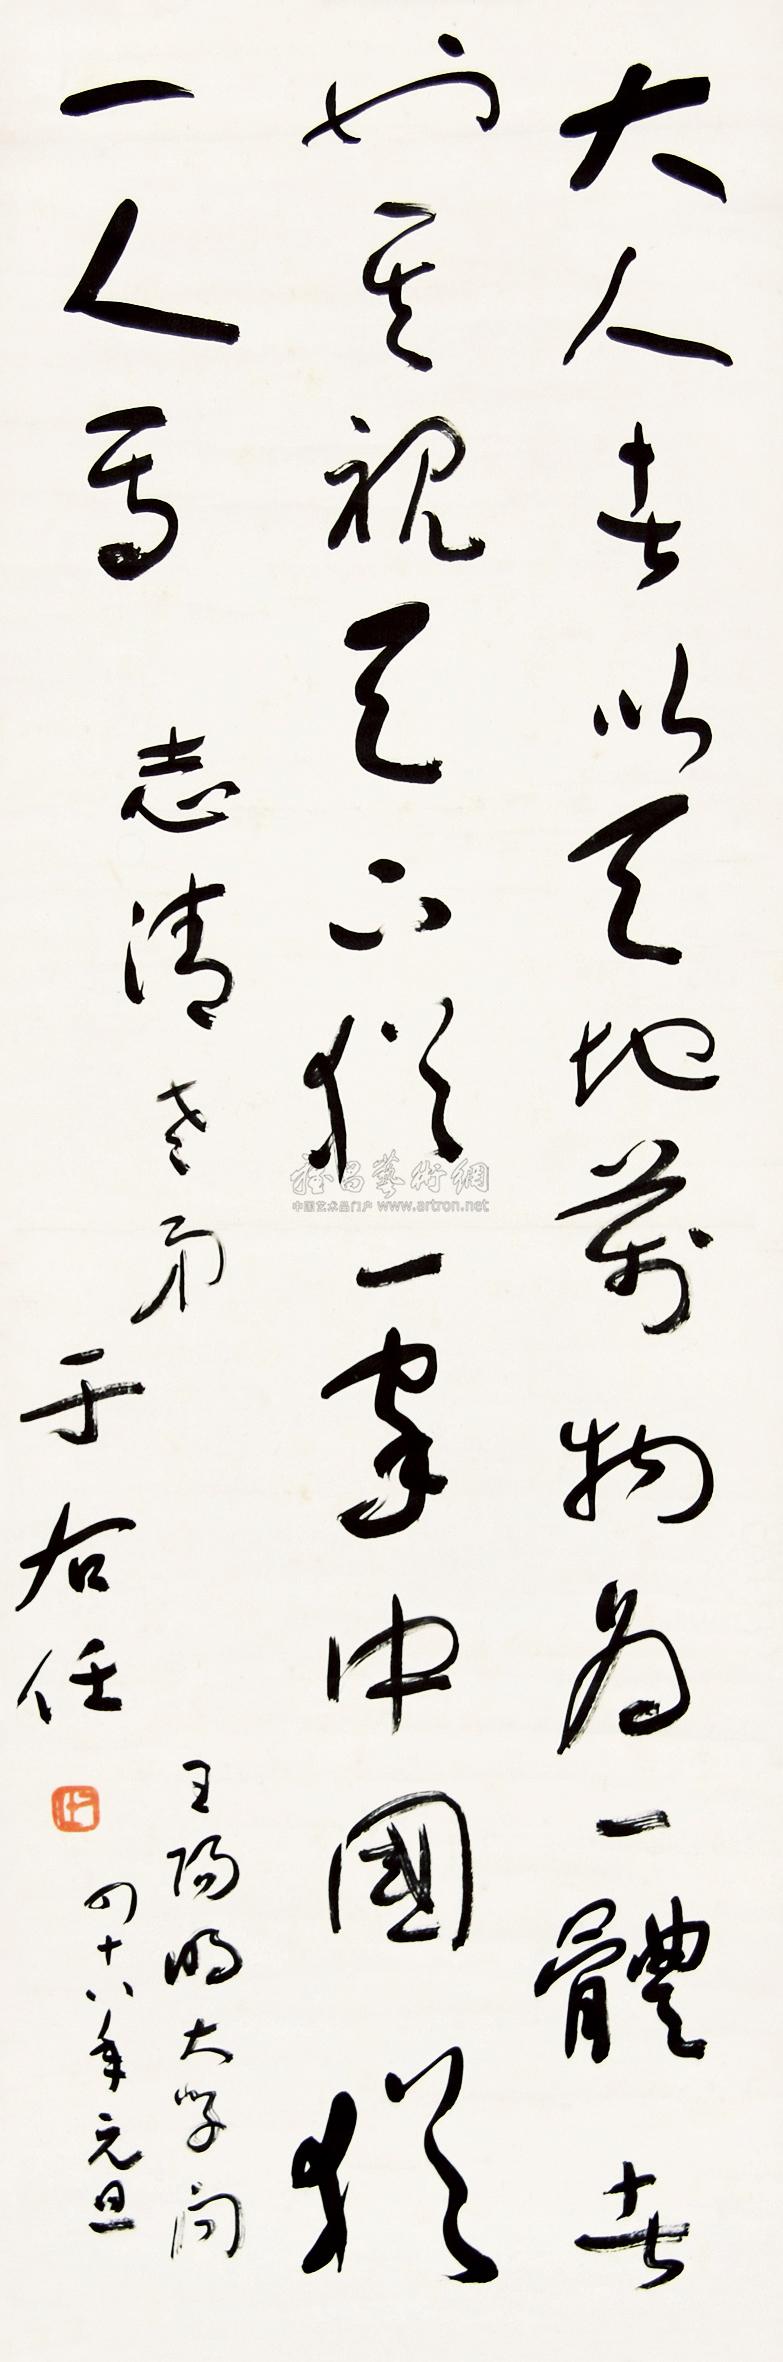 大人者以天地萬物為一體者
也其視天下猶一家中國猶
一人焉
志清老弟
于右任
王陽明大学问
四十八年元旦
雅昌藝術網
中国艺术品门户 www.artron.net